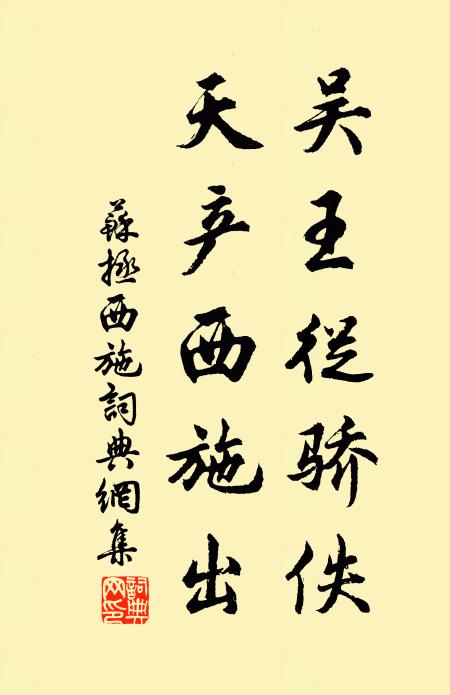 吴王从骄佚
天产西施出
蘇拯西施詞典網集
詞典網印